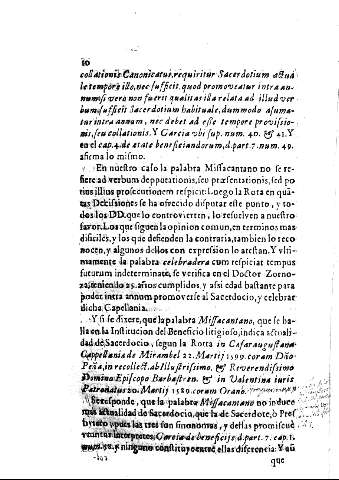 10
collationis Canonicatus, requiritur Sacerdotium actu
le tempore illo, nec sufficit, quod promoveatur intra an-
num, si vero non fuerit qualitas illa relata ad illud ver-
bum, sufficit Sacerdotium habituale, dummodo assuma-
tur intra annum, nec debet adesse tempore provisio-
nis, seu collationis. Y Garcia ubi sup. num. 40. & 41. Y
en el cap. 4. de ætate beneficiandorum, d. part. 7. num. 49.
afirma lo mismo.
En nuestro caso la palabra Missacantano no se re-
fiere ad verbum deputationis, seu præsentationis, sed po-
tius illius prosecutionem respicit: Luego la Rota en quã-
tas Decisiones se ha ofrecido disputar este punto, y to-
dos los DD. que lo controvierten, lo resuelven a nuestro
favor. Los que siguen la opinion comun, en terminos mas
dificiles, y los que defienden la contraria, tambien lo reco
nocen, y algunos dellos con expression lo atestan. Y ulti-
mamente la palabra celebradera cum respiciat tempus
futurum indeterminatè, se verifica en el Doctor Zorno-
za, teniendo 25. años cumplidos, y assi edad bastante para
poder intra annum promoverse al Sacerdocio, y celebrar
dicha Capellania.
Y si se dixere, que la palabra Missacantano, que se ha-
lla en la Institucion del Beneficio litigioso, indica actuali-
dad de Sacerdocio, segun la Rotta in Cæsaraugustana
Cappellania de Mirambel 22. Martij 1599. coram Dño
Peña, in recollect. ab Illustrissimo, & Reverendissimo
Domino Episcopo Barbastren. & in Valentina iuris
Patronatus 20. Martij 1589. coram Orano.
Se responde, que la palabra Missacantano no induce
mas actualidad de Sacerdocio, que la de Sacerdote, ò Pres
bytero pues las tres son sinonomas, y dellas promiscuè
Garcia de beneficijs, d. part. 7. cap. 1.
y ninguno constituye entre ellas diferencia: Y aũ
que